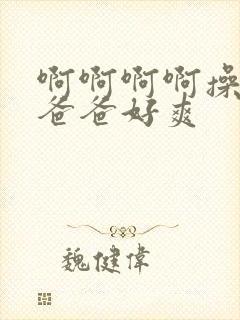 啊啊啊啊操
爸爸好爽
魏健偉